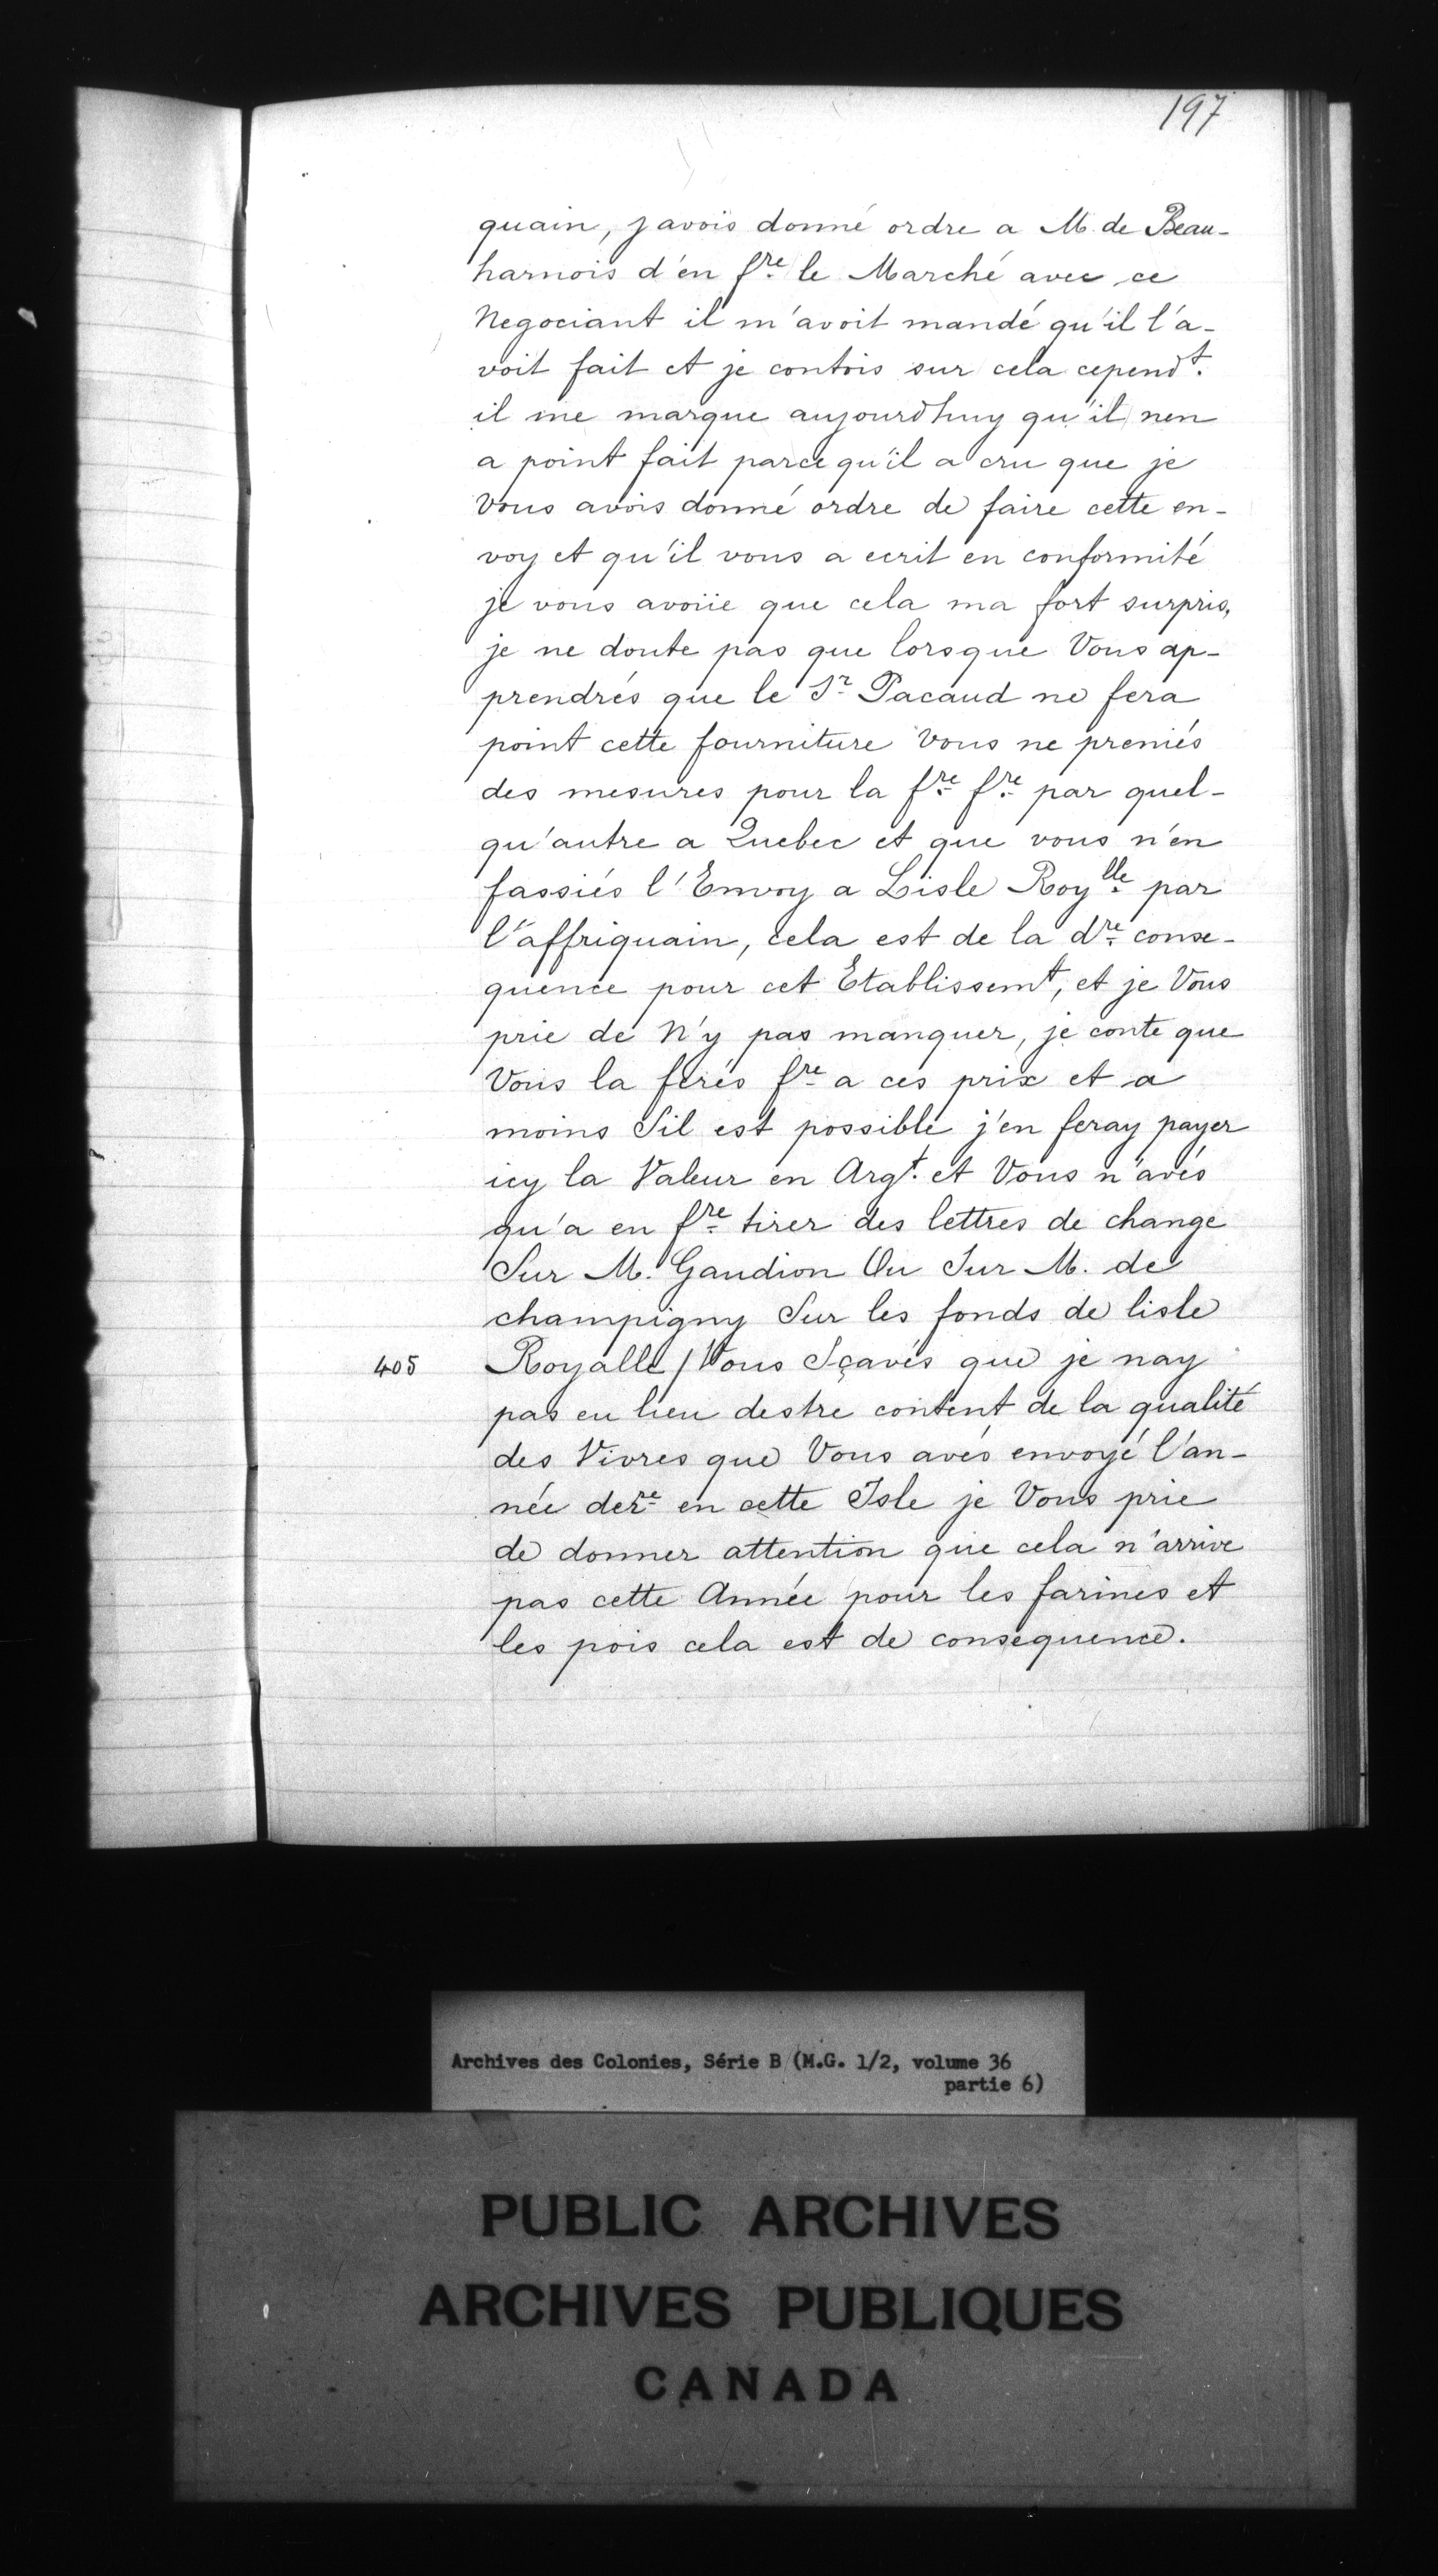 197
quain, j avois donné ordre a M. de Beau-
harnois d'en f.re le Marché avec ce
Negociant il m'avoit mandé qu'il l'a-
voit fait et je contois sur cela cependt.
il me marque aujourdhuy qu'il nen
a point fait parce qu'il a cru que je
Vous avois donné ordre de faire cette en-
voy et qu'il vous a ecrit en conformité
je vous avoüe que cela ma fort surpris,
je ne doute pas que lorsque Vous ap-
prendrés que le Sr. Pacaud ne fera
point cette fourniture Vous ne preniés
des mesures pour la f.re f.re par quel-
qu'autre a Quebec et que vous n'en
fassiés l'Envoy a Lisle Roylle. par
l'affriquain, cela est de la d.re conse-
quence pour cet Etablissemt, et je Vous
prie de N'y pas manquer, je conte que
Vous la ferés f.re a ces prix et a
moins Sil est possible j'en feray payer
icy la Valeur en Argt. et Vous n'avés
qu'a en f.re tirer des lettres de change
Sur M. Gaudion Ou Sur M. de
champigny Sur les fonds de lisle
405 Royalle / Vous Sçavés que je nay
pas eu lieu destre content de la qualité
des Vivres que Vous avés envoyé l'an-
née der.re en cette Isle je Vous prie
de donner attention que cela n'arrive
pas cette Année pour les farines et
les pois cela est de consequence.
Archives des Colonies, Série B (M.G. 1/2, volume 36
partie 6)
PUBLIC ARCHIVES
ARCHIVES PUBLIQUES
CANADA